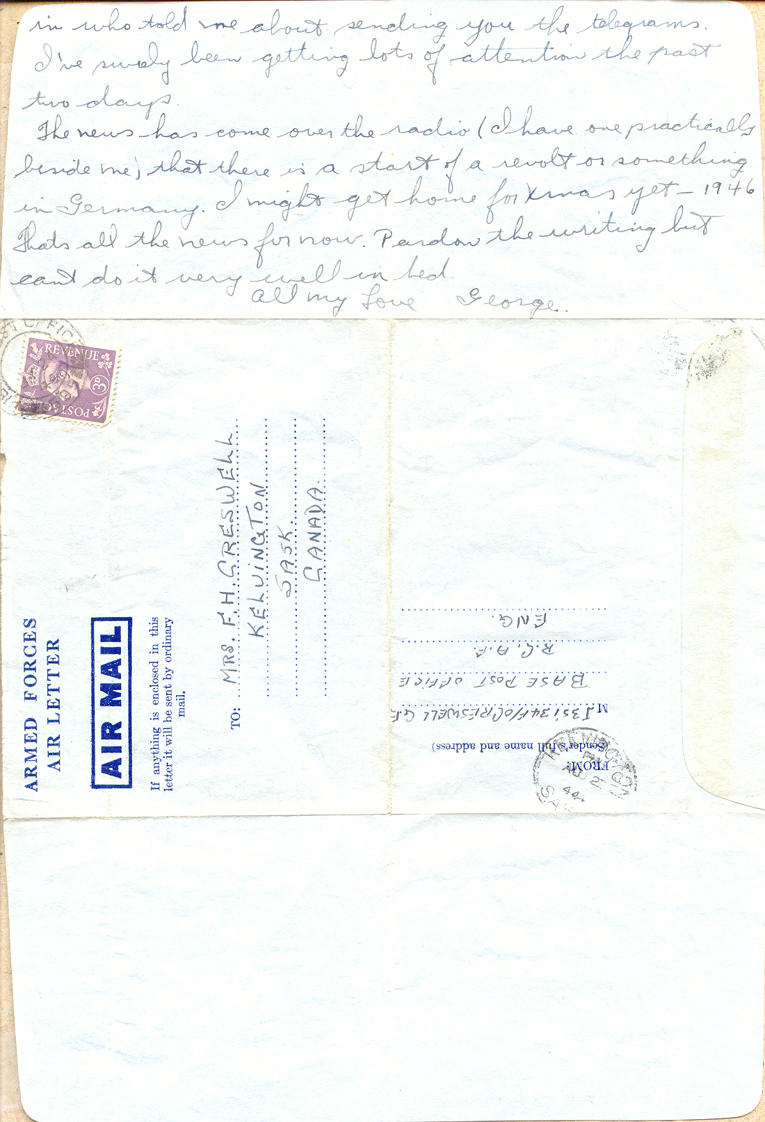 in who told me about sending you the telegrams.
I've surely been getting lots of attention the past
two days.
The news has come over the radio (I have one practically
beside me) that there is a start of a revolt or something
in Germany. I might get home for Xmas yet – 1946
Thats all the news for now. Pardon the writing but
cant do it very well in bed.
All my love George.
REVENUE
3D
POSTAGE
ARMED FORCES
AIR LETTER
AIR MAIL
If anything is enclosed in this
letter it will be sent by ordinary
mail.
TO: MRS. F.H. GRESWELL
KELVINGTON
SASK.
CANADA.
FROM:
(Sender's full name and address)
J35134 F/O CRESWELL G.F.
BASE POST OFFICE
R.C.A.F.
ENG.
KELVINGTON
PM
44